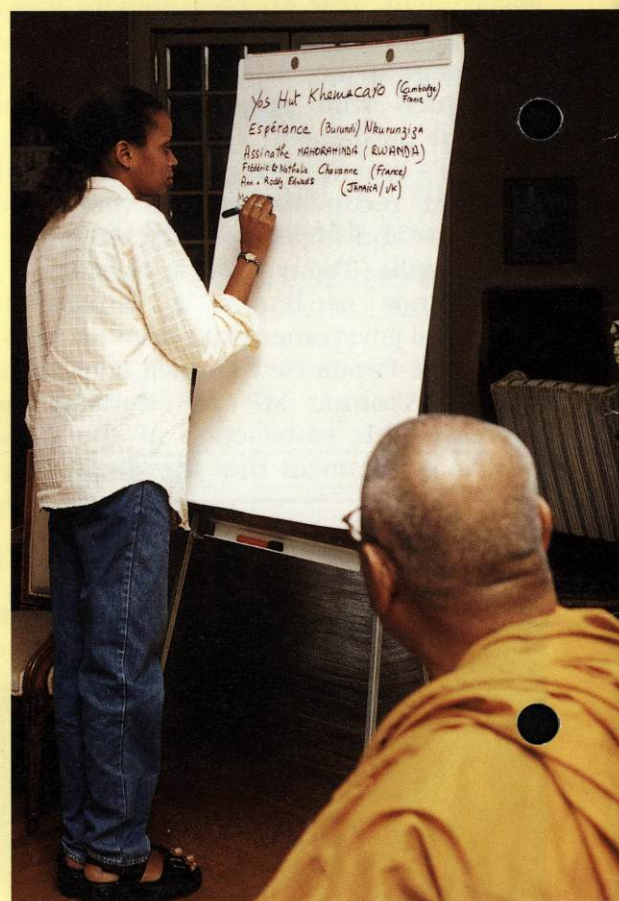 Yos Hut Khemacaro (Cambodge) France
Espérance (Burundi) Nkurunziza
Assinathe MAHORAHINDA (RWANDA)
Frédéric & Nathalie Chavanne (France)
Ann & Roddy Edwards (JAMAICA/UK)